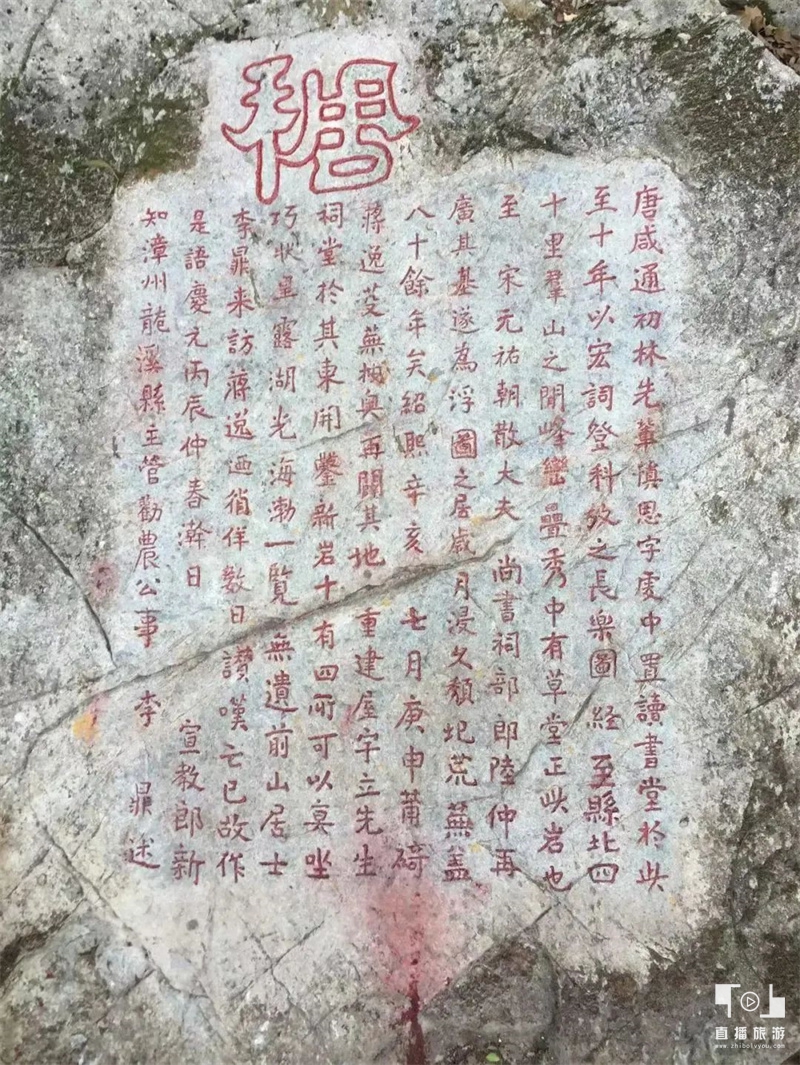 唐咸通初林先輩慎思字虔中置讀書堂於此
至十年以宏詞登科攷之長樂圖經至縣北四
十里羣山之間峰巒疊秀中有草堂正此岩也
至宋元祐朝散大夫尚書祠部郎陸仲再
廣其基遂為浮圖之居歲月浸久頹圮荒蕪蓋
八十餘年矣紹熙辛亥七月庚申莆碕
蔣逸芟蕪抽奧再闢其地重建屋宇立先生
祠堂於其東開鑿新岩十有四所可以宴坐
巧狀呈露湖光海渤一覽無遺前山居士
李鼎来訪蔣逸迺徜徉數日讚嘆亡已故作
是語慶元丙辰仲春澣日宣教郎新
知漳州龍溪縣主管勸農公事李鼎述
直播旅游
www.zhibolvyou.com